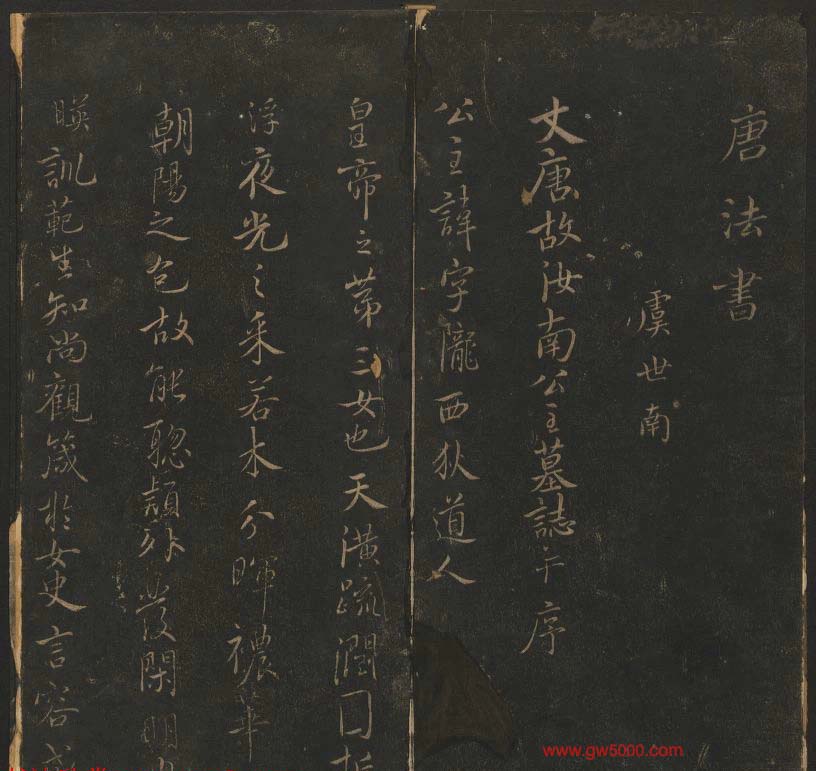 唐法書
虞世南
大唐故汝南公主墓誌并序
公主諱字隴西狄道人
皇帝之第三女也天潢疏潤圆折
浮夜光之采若木分暉穠華
朝陽之色故能聰穎外發閑明内
暎訓範生知尚觀箴於女史言容
www.gw5000.com